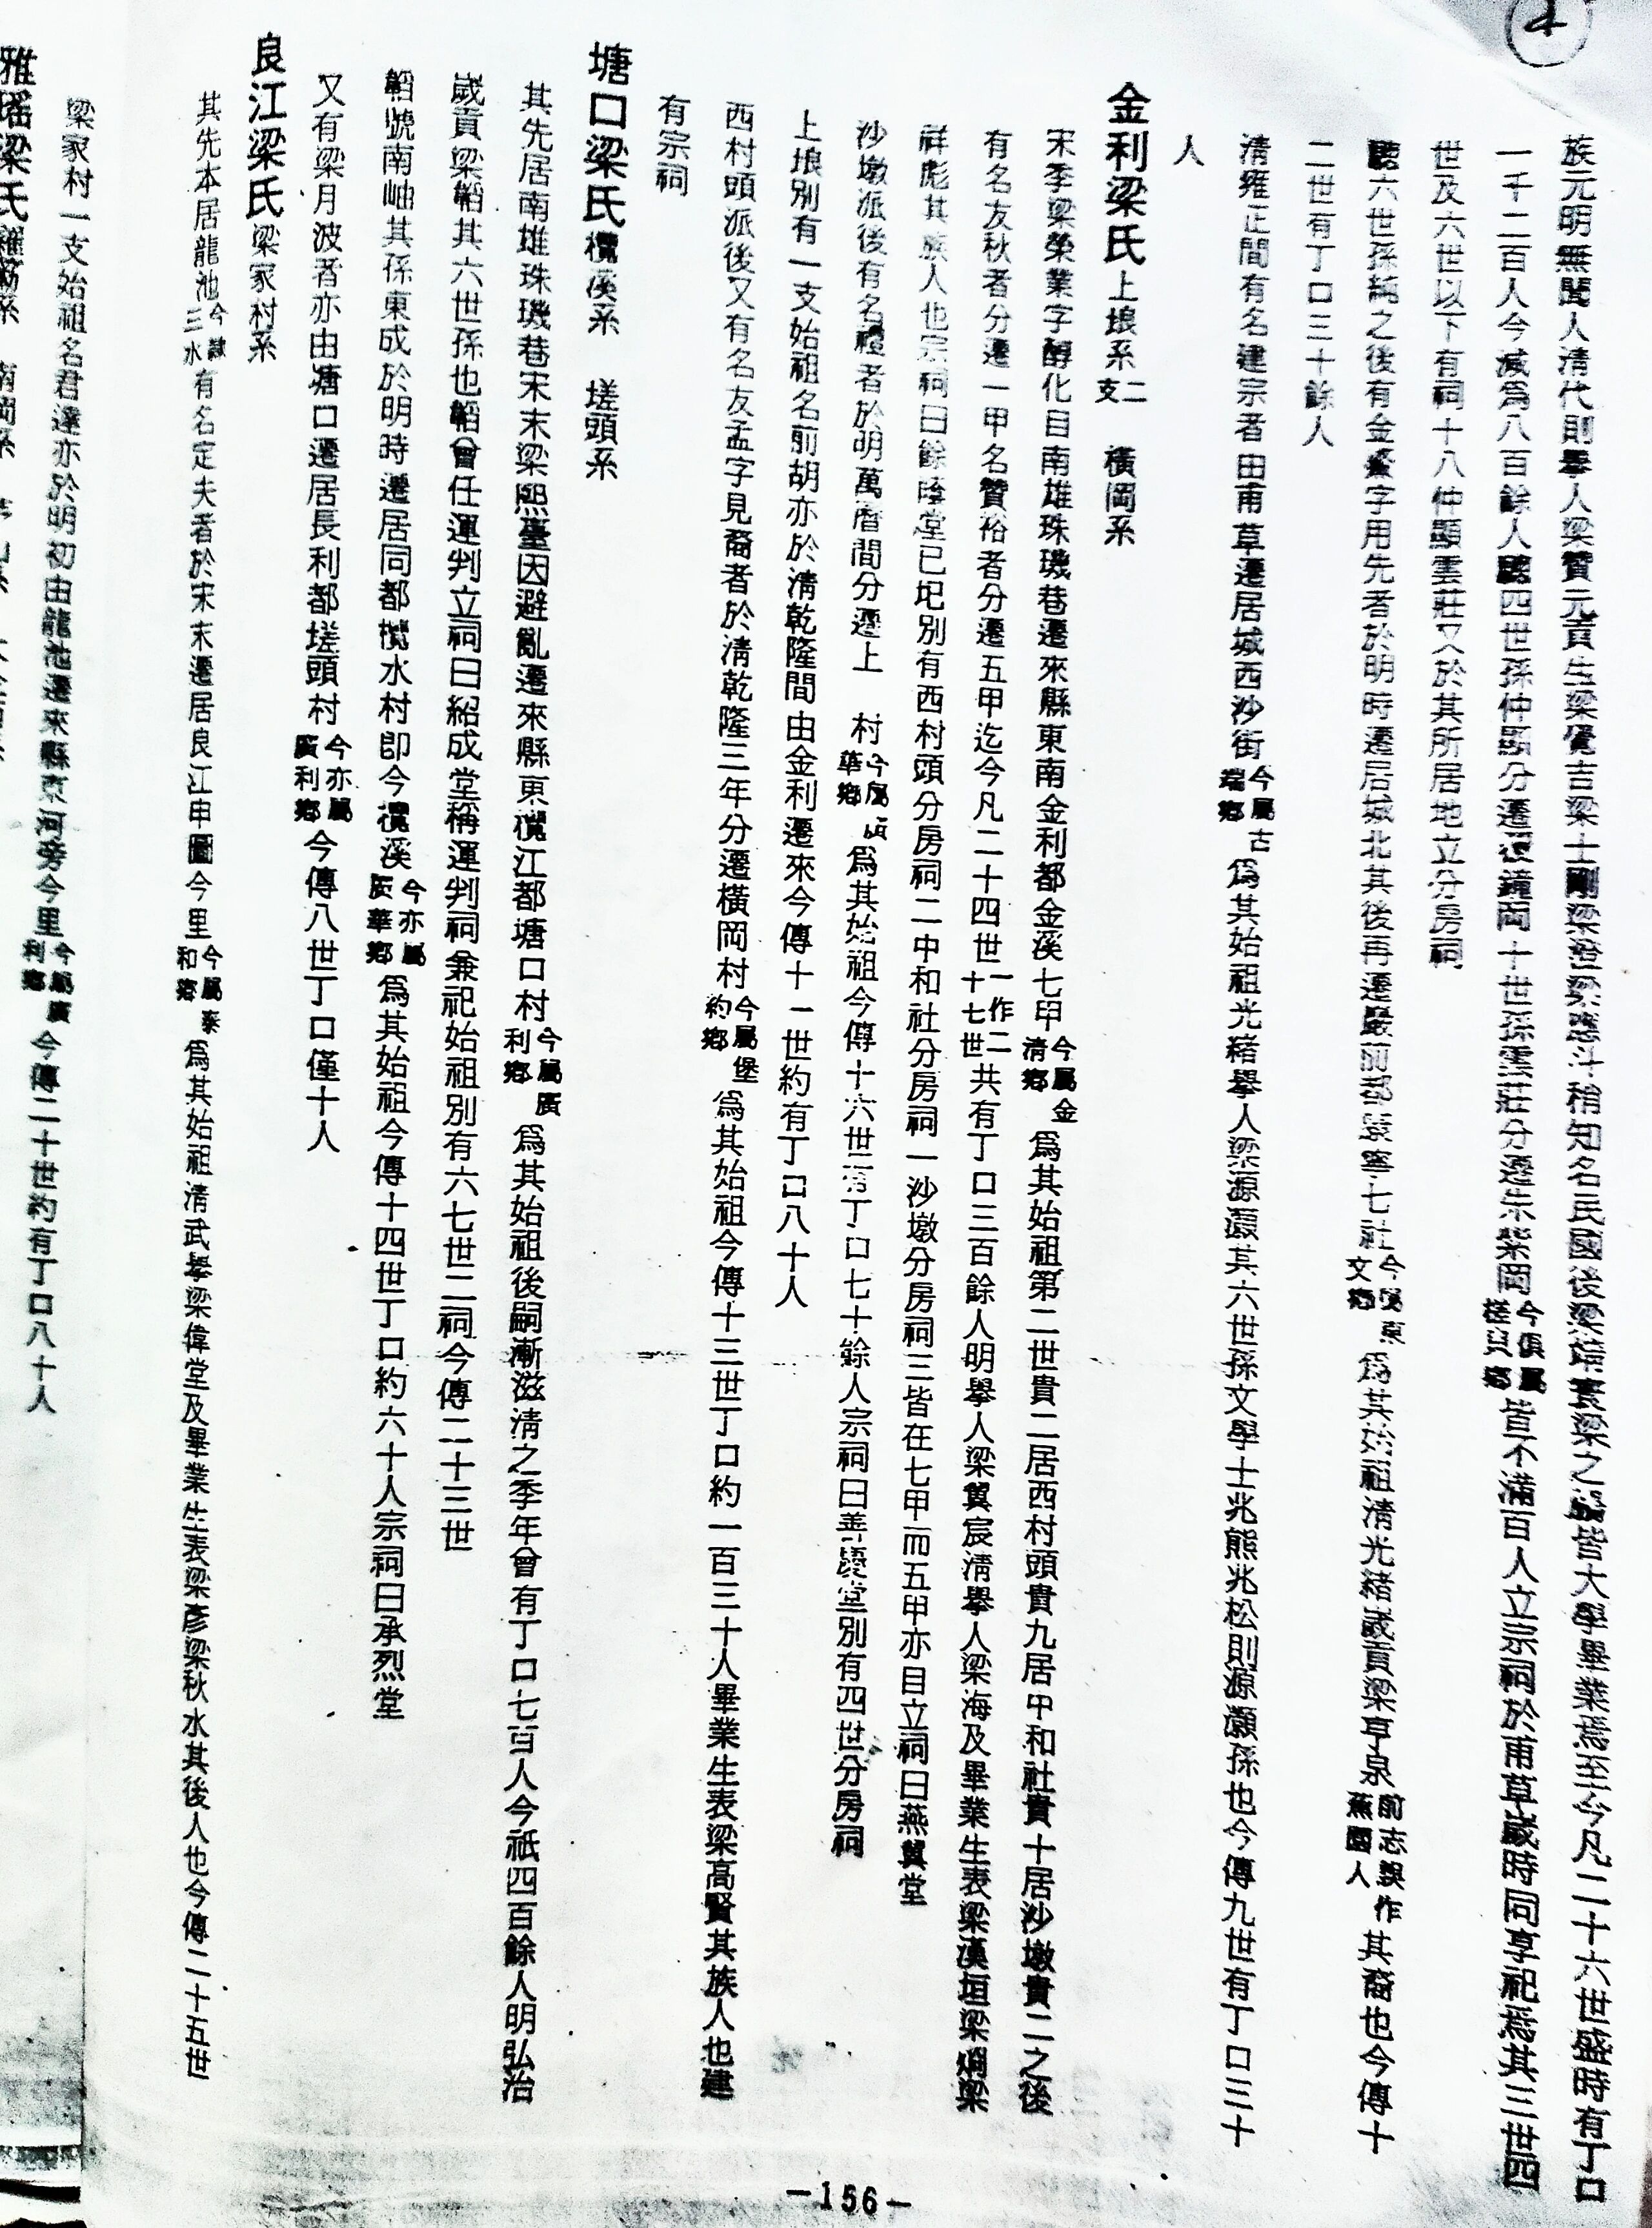 族元明無聞人清代則舉人梁贊元貢生梁覺吉梁士剛梁應斗稍知名民國後梁之皆大學畢業焉至今凡二十六世盛時有丁口
一千二百人今減為八百餘人四世孫仲顯分遷鐘岡十世孫雲莊分遷朱紫岡今俱屬槎貝鄉皆不滿百人立宗祠於甫草歲時同享祀焉其三世四
世及六世以下有祠十八仲顯雲莊又於其所居地立分房祠
六世孫純之後有金字用先者於明時遷居城北其後再遷嚴前都寧七社今屬東文鄉為其始祖清光緒歲貢梁亨泉前志誤作蕉園人其裔也今傳十
二世有丁口三十餘人
清雍正間有名建宗者由甫草遷居城西沙街今屬古端鄉為其始祖光緒舉人梁源灝其六世孫文學士兆熊兆松則源灝孫也今傳九世有丁口三十
人
金利梁氏上埌系二支 橫岡系
宋季梁榮業字醇化自南雄珠璣巷遷來縣東南金利都金溪七甲今屬金清鄉為其始祖第二世貴二居西村頭貴九居中和社貴十居沙墩貴二之後
有名友秋者分遷一甲名贊裕者分遷五甲迄今凡二十四世一作二十七世共有丁口三百餘人明舉人梁翼宸清舉人梁海及畢業生表梁漢垣梁炯梁
祥彪其族人也宗祠曰餘蔭堂已圮別有西村頭分房祠二中和社分房祠一沙墩分房祠三皆在七甲而五甲亦自立祠曰燕翼堂
沙墩派後有名禮者於明萬曆間分遷上 村今屬華鄉為其始祖今傳十六世有丁口七十餘人宗祠曰善慶堂別有四世分房祠
上埌別有一支始祖名前胡亦於清乾隆間由金利遷來今傳十一世約有丁口八十人
西村頭派後又有名友孟字見裔者於清乾隆三年分遷橫岡村今屬堡約鄉為其始祖今傳十三世丁口約一百三十人畢業生表梁高賢其族人也建
有宗祠
塘口梁氏欖溪系 搓頭系
其先居南雄珠璣巷宋末梁熙臺因避亂遷來縣東欖江都塘口村今屬廣利鄉為其始祖後嗣漸滋清之季年曾有丁口七百人今祇四百餘人明弘治
歲貢梁韜其六世孫也韜曾任運判立祠曰紹成堂稱運判祠兼祀始祖別有六七世二祠今傳二十三世
韜號南岫其孫東成於明時遷居同都欖水村即今欖溪今亦屬廣華鄉為其始祖今傳十四世丁口約六十人宗祠曰承烈堂
又有梁月波者亦由塘口遷居長利都搓頭村今亦屬廣利鄉今傳八世丁口僅十人
良江梁氏梁家村系
其先本居龍池今隸三水有名定夫者於宋末遷居良江申圖今里今屬泰和鄉為其始祖清武舉梁偉堂及畢業生表梁彥梁秋水其後人也今傳二十五世
梁家村一支始祖名君達亦於明初由龍池遷來縣東河旁今里今屬廣利鄉今傳二十世約有丁口八十人
雅瑤梁氏
4
—156—